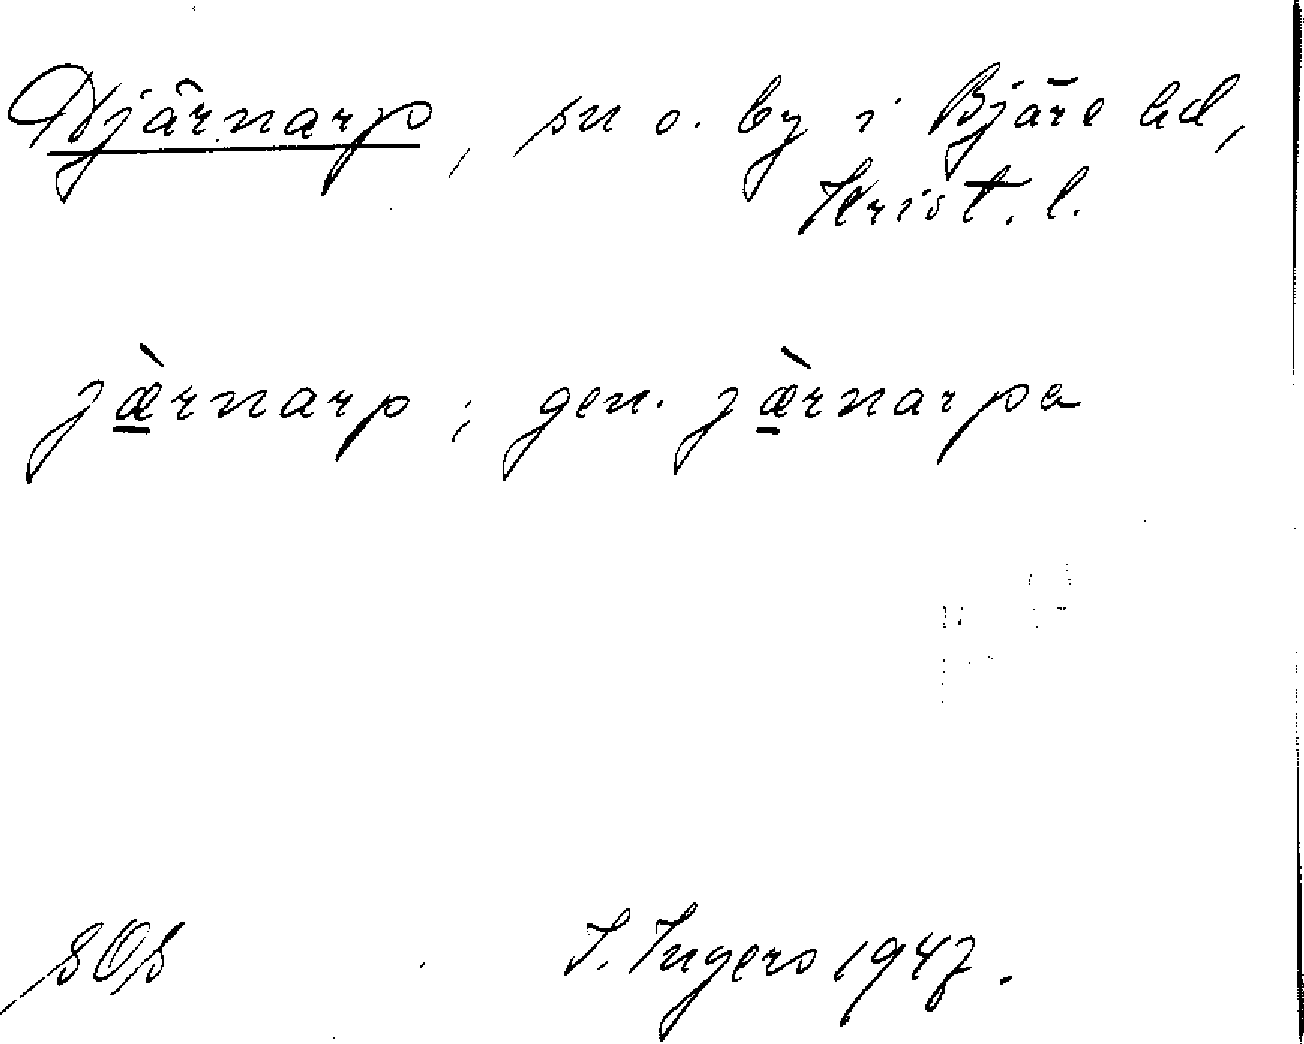 Djärnarp, sn o. by i Bjäre hd,
Krist. l.
jæ̀rnarp; gen. jæ̀rnarpa
sOs I. Ingers 1947.